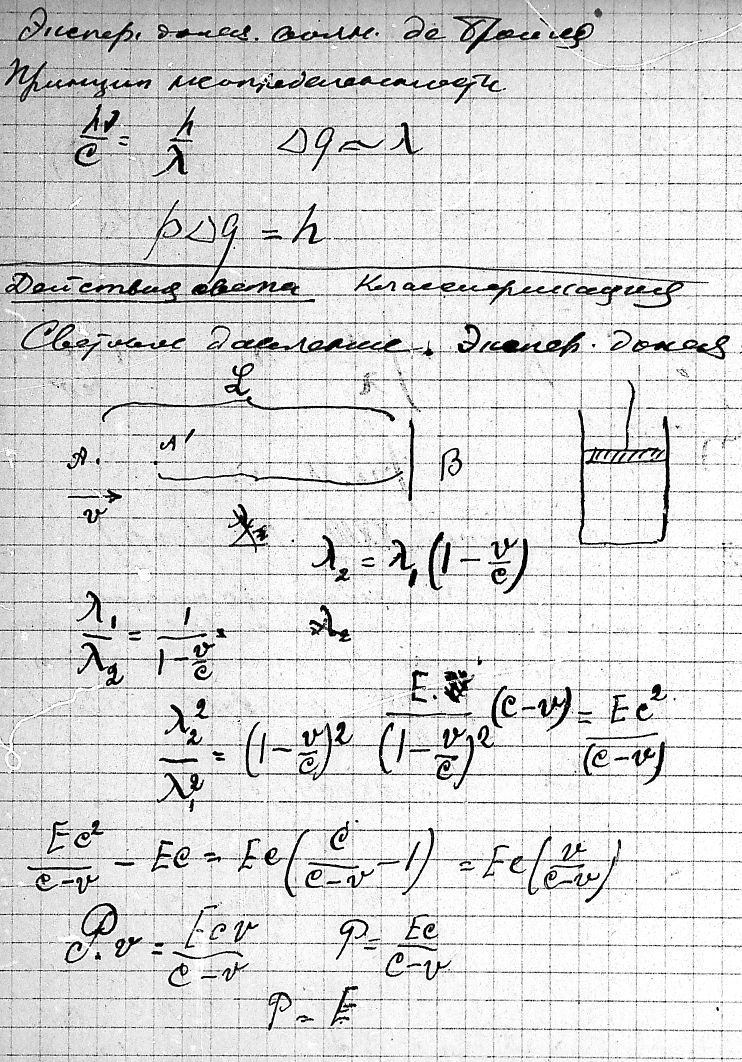 Экспер. доказ. волн. де Бройля
Принцип неопределенности
hν/c = h/λ Δq ~ λ
pΔq = h
Действия света Классификация
Световое давление. Экспер. доказ
L
A. A' B
v
λ₂ = λ₁(1 - v/c)
λ₁/λ₂ = 1/(1 - v/c) =
λ₂²/λ₁² = (1 - v/c)² E./(1 - v/c)² (c - v) = Ec²/(c - v)
Ec²/(c - v) - Ec = Ec(c/(c - v) - 1) = Ec(v/(c - v))
P·v = Ecv/(c - v) P = Ec/(c - v)
P = E